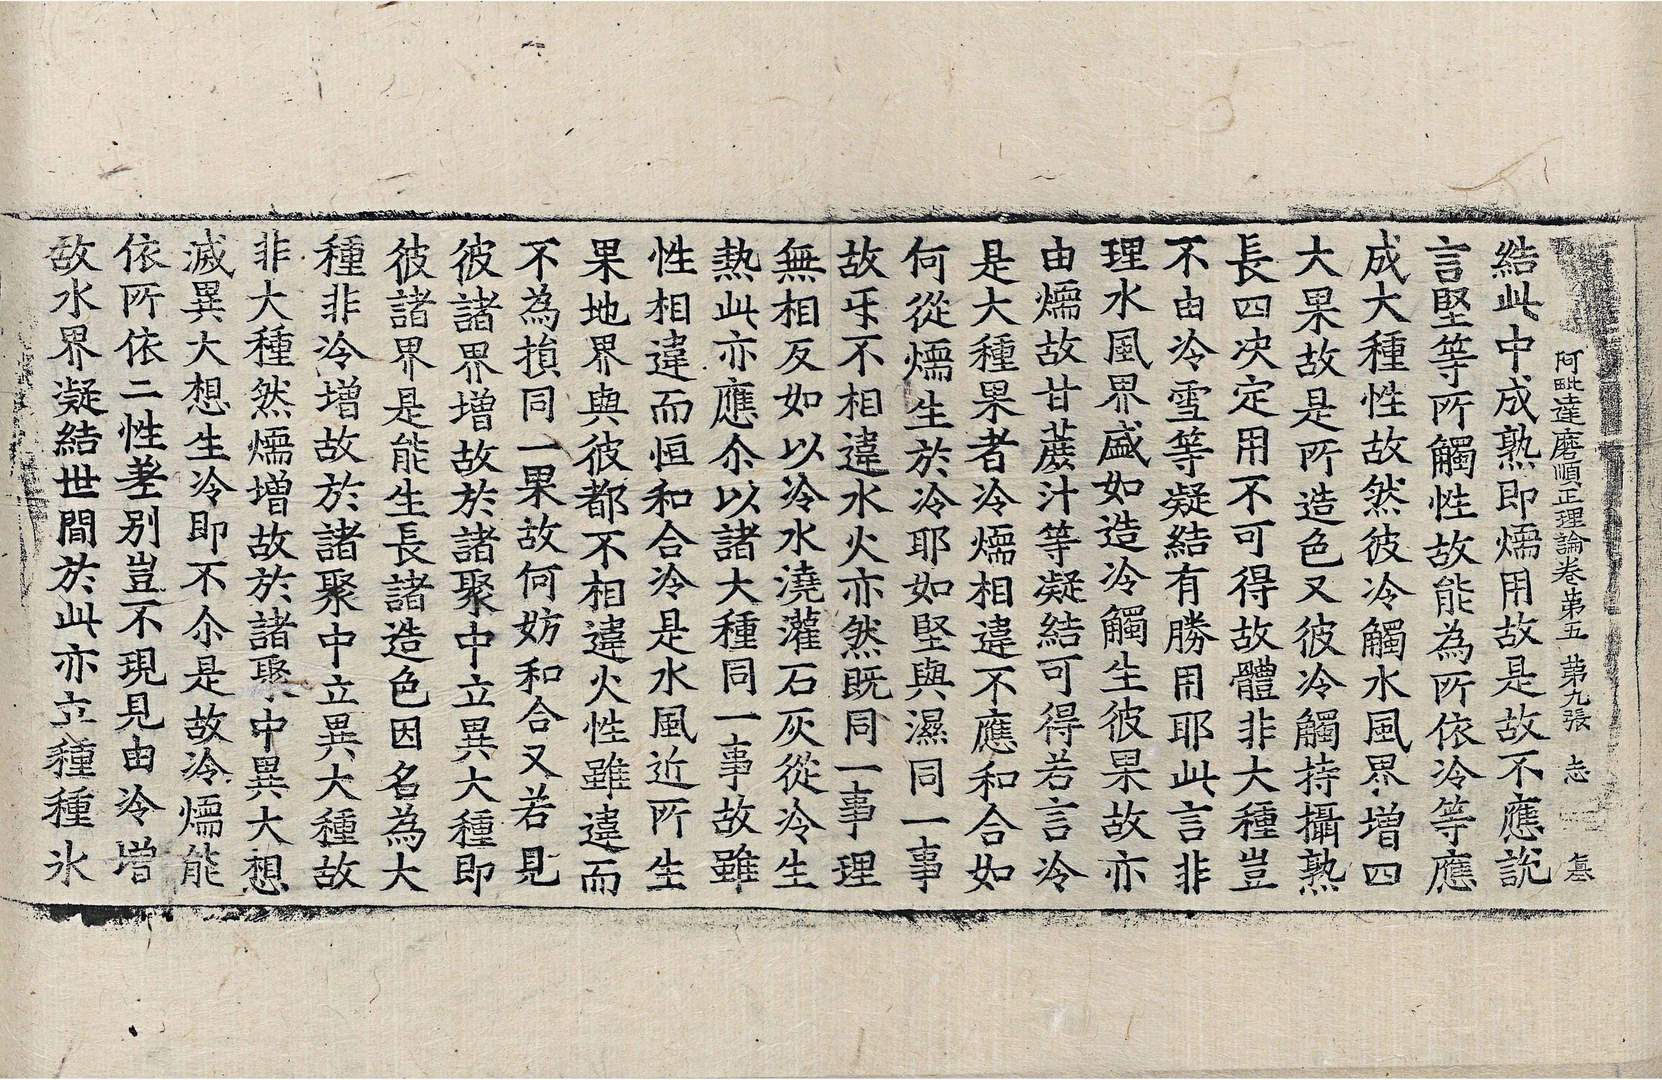 阿毗達磨順正理論卷第五　第九張　忐
結此中成熟即煗用故是故不應說
言堅等所觸性故能為所依冷等應
成大種性故然彼冷觸水風界增四
大果故是所造色又彼冷觸持攝熟
長四決定用不可得故體非大種豈
不由冷雪等凝結有勝用耶此言非
理水風界盛如造冷觸生彼果故亦
由煗故甘蔗汁等凝結可得若言冷
是大種果者冷煗相違不應和合如
何從煗生於冷耶如堅與濕同一事
故乐不相違水火亦然既同一事理
無相反如以冷水澆灌石灰從冷生
熱此亦應尒以諸大種同一事故雖
性相違而恒和合冷是水風近所生
果地界與彼都不相違火性雖違而
不為損同一果故何妨和合又若見
彼諸界增故於諸聚中立異大種即
彼諸界是能生長諸造色因名為大
種非冷增故於諸聚中立異大種故
非大種然煗增故於諸聚中異大想
滅異大想生冷即不尒是故冷煗能
依所依二性差別豈不現見由冷增
故水界凝結世間於此亦立種種氷